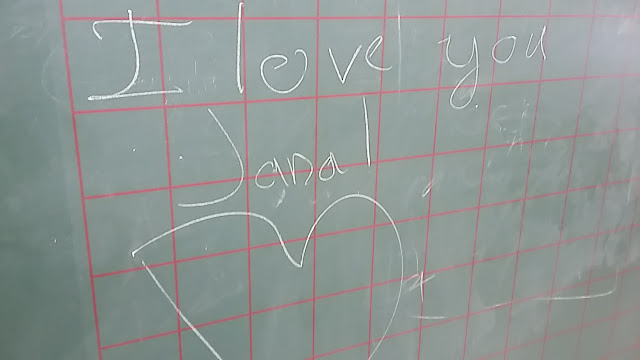 I love you
Janal